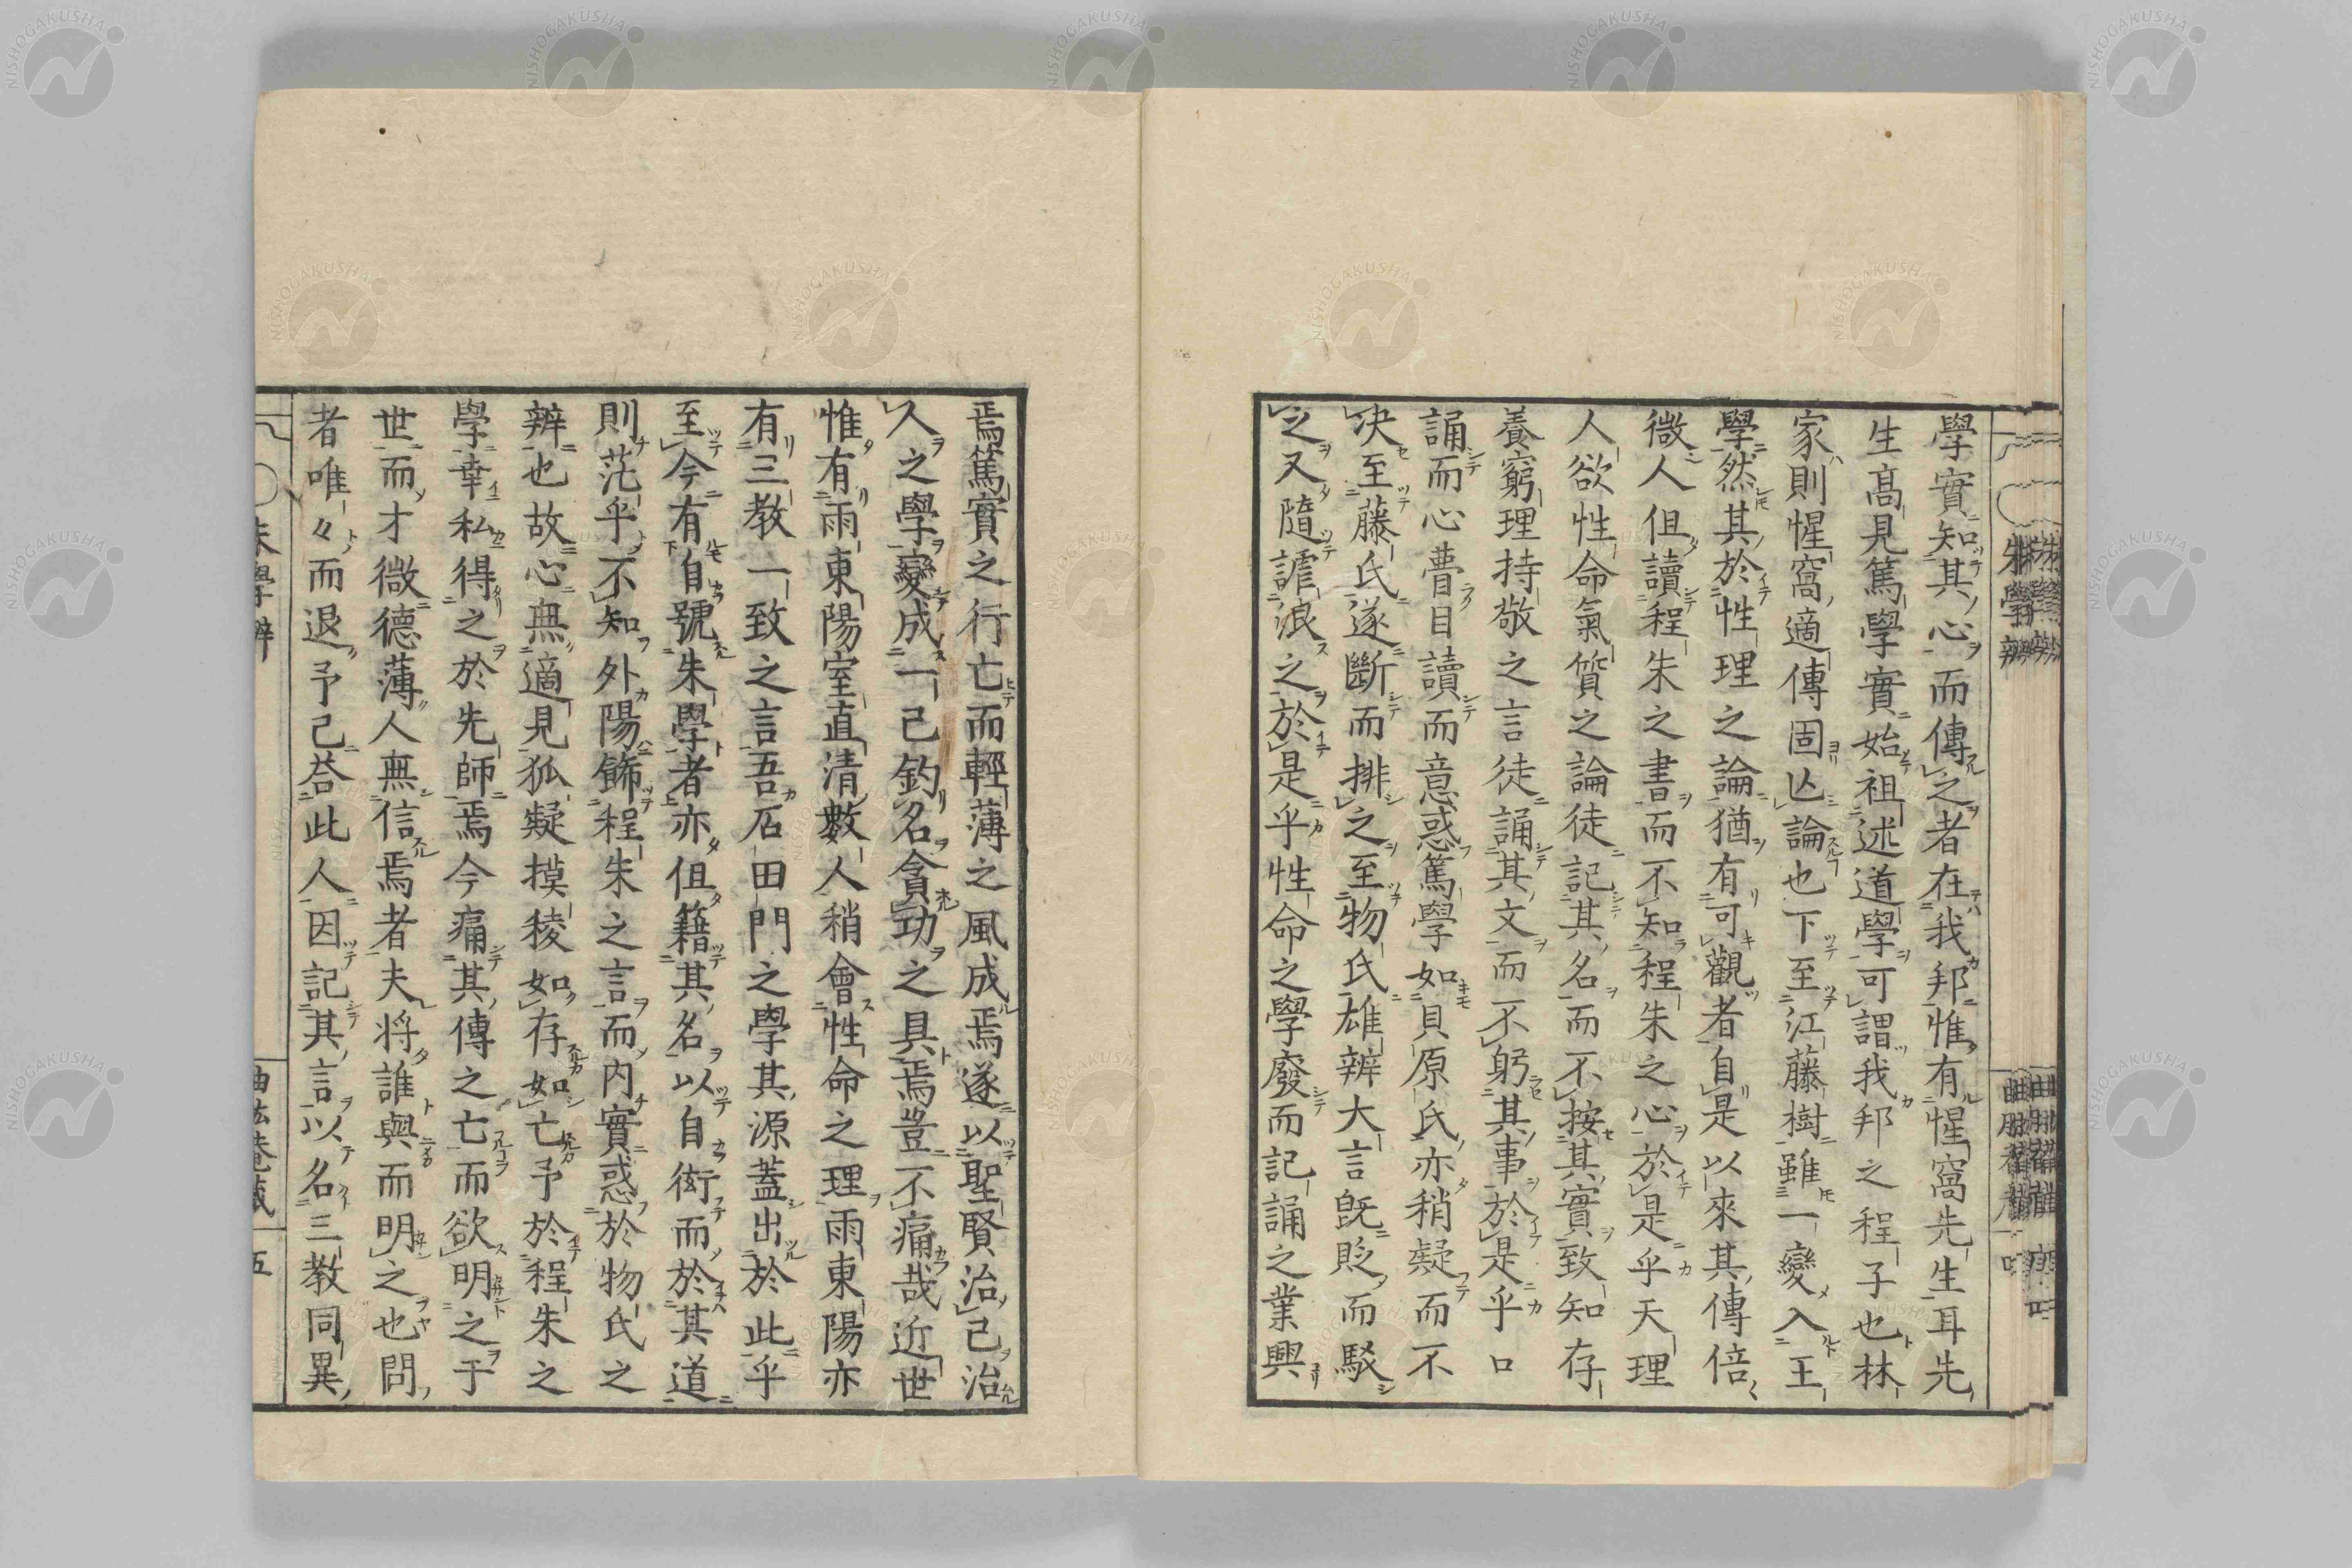 學實知其心而傳之者在我邦惟有惺窩先生耳先
生高見篤學實始祖述道學可謂我邦之程子也林
家則惺窩適傳固亾論也下至江藤樹雖一變入王
學然其於性理之論猶有可觀者自是以來其傳倍
微人但讀程朱之書而不知程朱之心於是乎天理
人欲性命氣質之論徒記其名而不按其實致知存
養窮理持敬之言徒誦其文而不躬其事於是乎口
誦而心瞢目讀而意惑篤學如貝原氏亦稍疑而不
决至藤氏遂斷而排之至物氏雄辨大言既貶而駁
之又隨謔浪之於是乎性命之學廢而記誦之業興
焉篤實之行亡而輕薄之風成焉遂以聖賢治己治
人之學變成一己釣名貪功之具焉豈不痛哉近世
惟有雨東陽室直清數人稍會性命之理雨東陽亦
有三教一致之言吾石田門之學其源蓋出於此乎
至今有自號朱學者亦但籍其名以自衒而於其道
則茫乎不知外陽飾程朱之言而内實惑於物氏之
辨也故心無適見狐疑摸稜如存如亡予於程朱之
學幸私得之於先師焉今痛其傳之亡而欲明之于
世而才微德薄人無信焉者夫將誰與而明之也問
者唯々而退予已荅此人因記其言以名三教同異
朱學辨
五
NISHOGAKUSHA